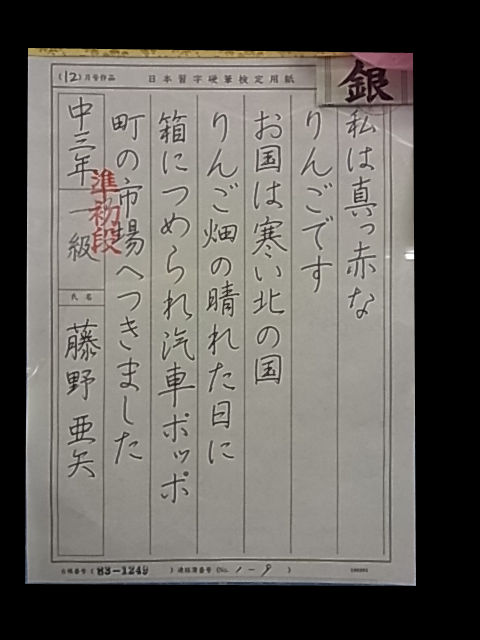 (12)月号作品
日本習字硬筆検定用紙
銀
私は真っ赤な
りんごです
お国は寒い北の国
りんご畑の晴れた日に
箱につめられ汽車ポッポ
町の市場へつきました
中三年
一級
準初段
氏名
藤野亜矢
会員番号(83-1249)
連絡簿番号(No. 1-9)